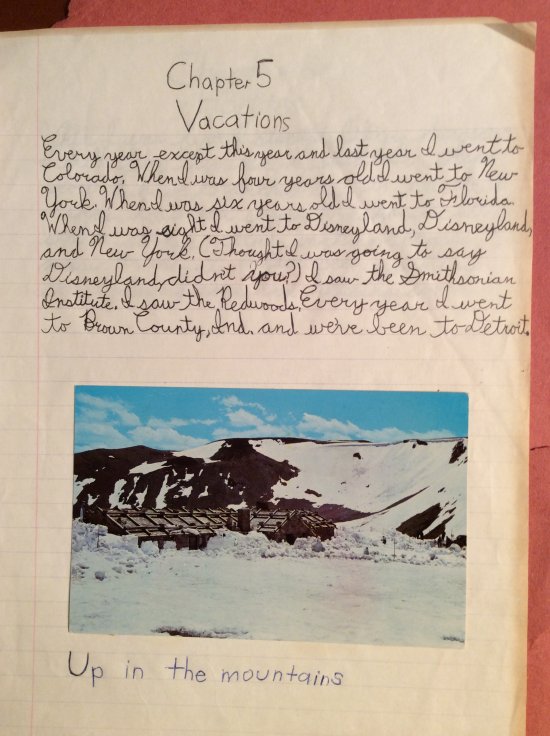 Chapter 5
Vacations
Every year except this year and last year I went to
Colorado. When I was four years old I went to New
York. When I was six years old I went to Florida.
When I was eight I went to Disneyland, Disneyland,
and New York. (Thought I was going to say
Disneyland, didn't you?) I saw the Smithsonian
Institute. I saw the Redwoods. Every year I went
to Brown County, Ind. and we've been to Detroit.
Up in the mountains